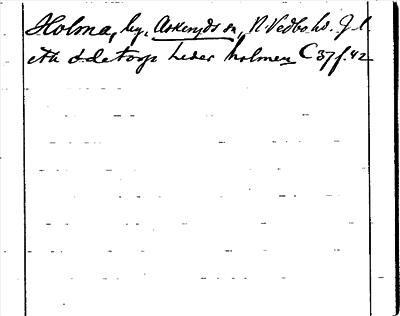 Holma, by, Askeryds sn, N. Vedbo hd. J. l.
ett ödetorp heder holmen C 37 f. 42